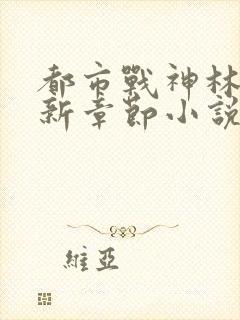 都市戰神林
新章節小說
維亞